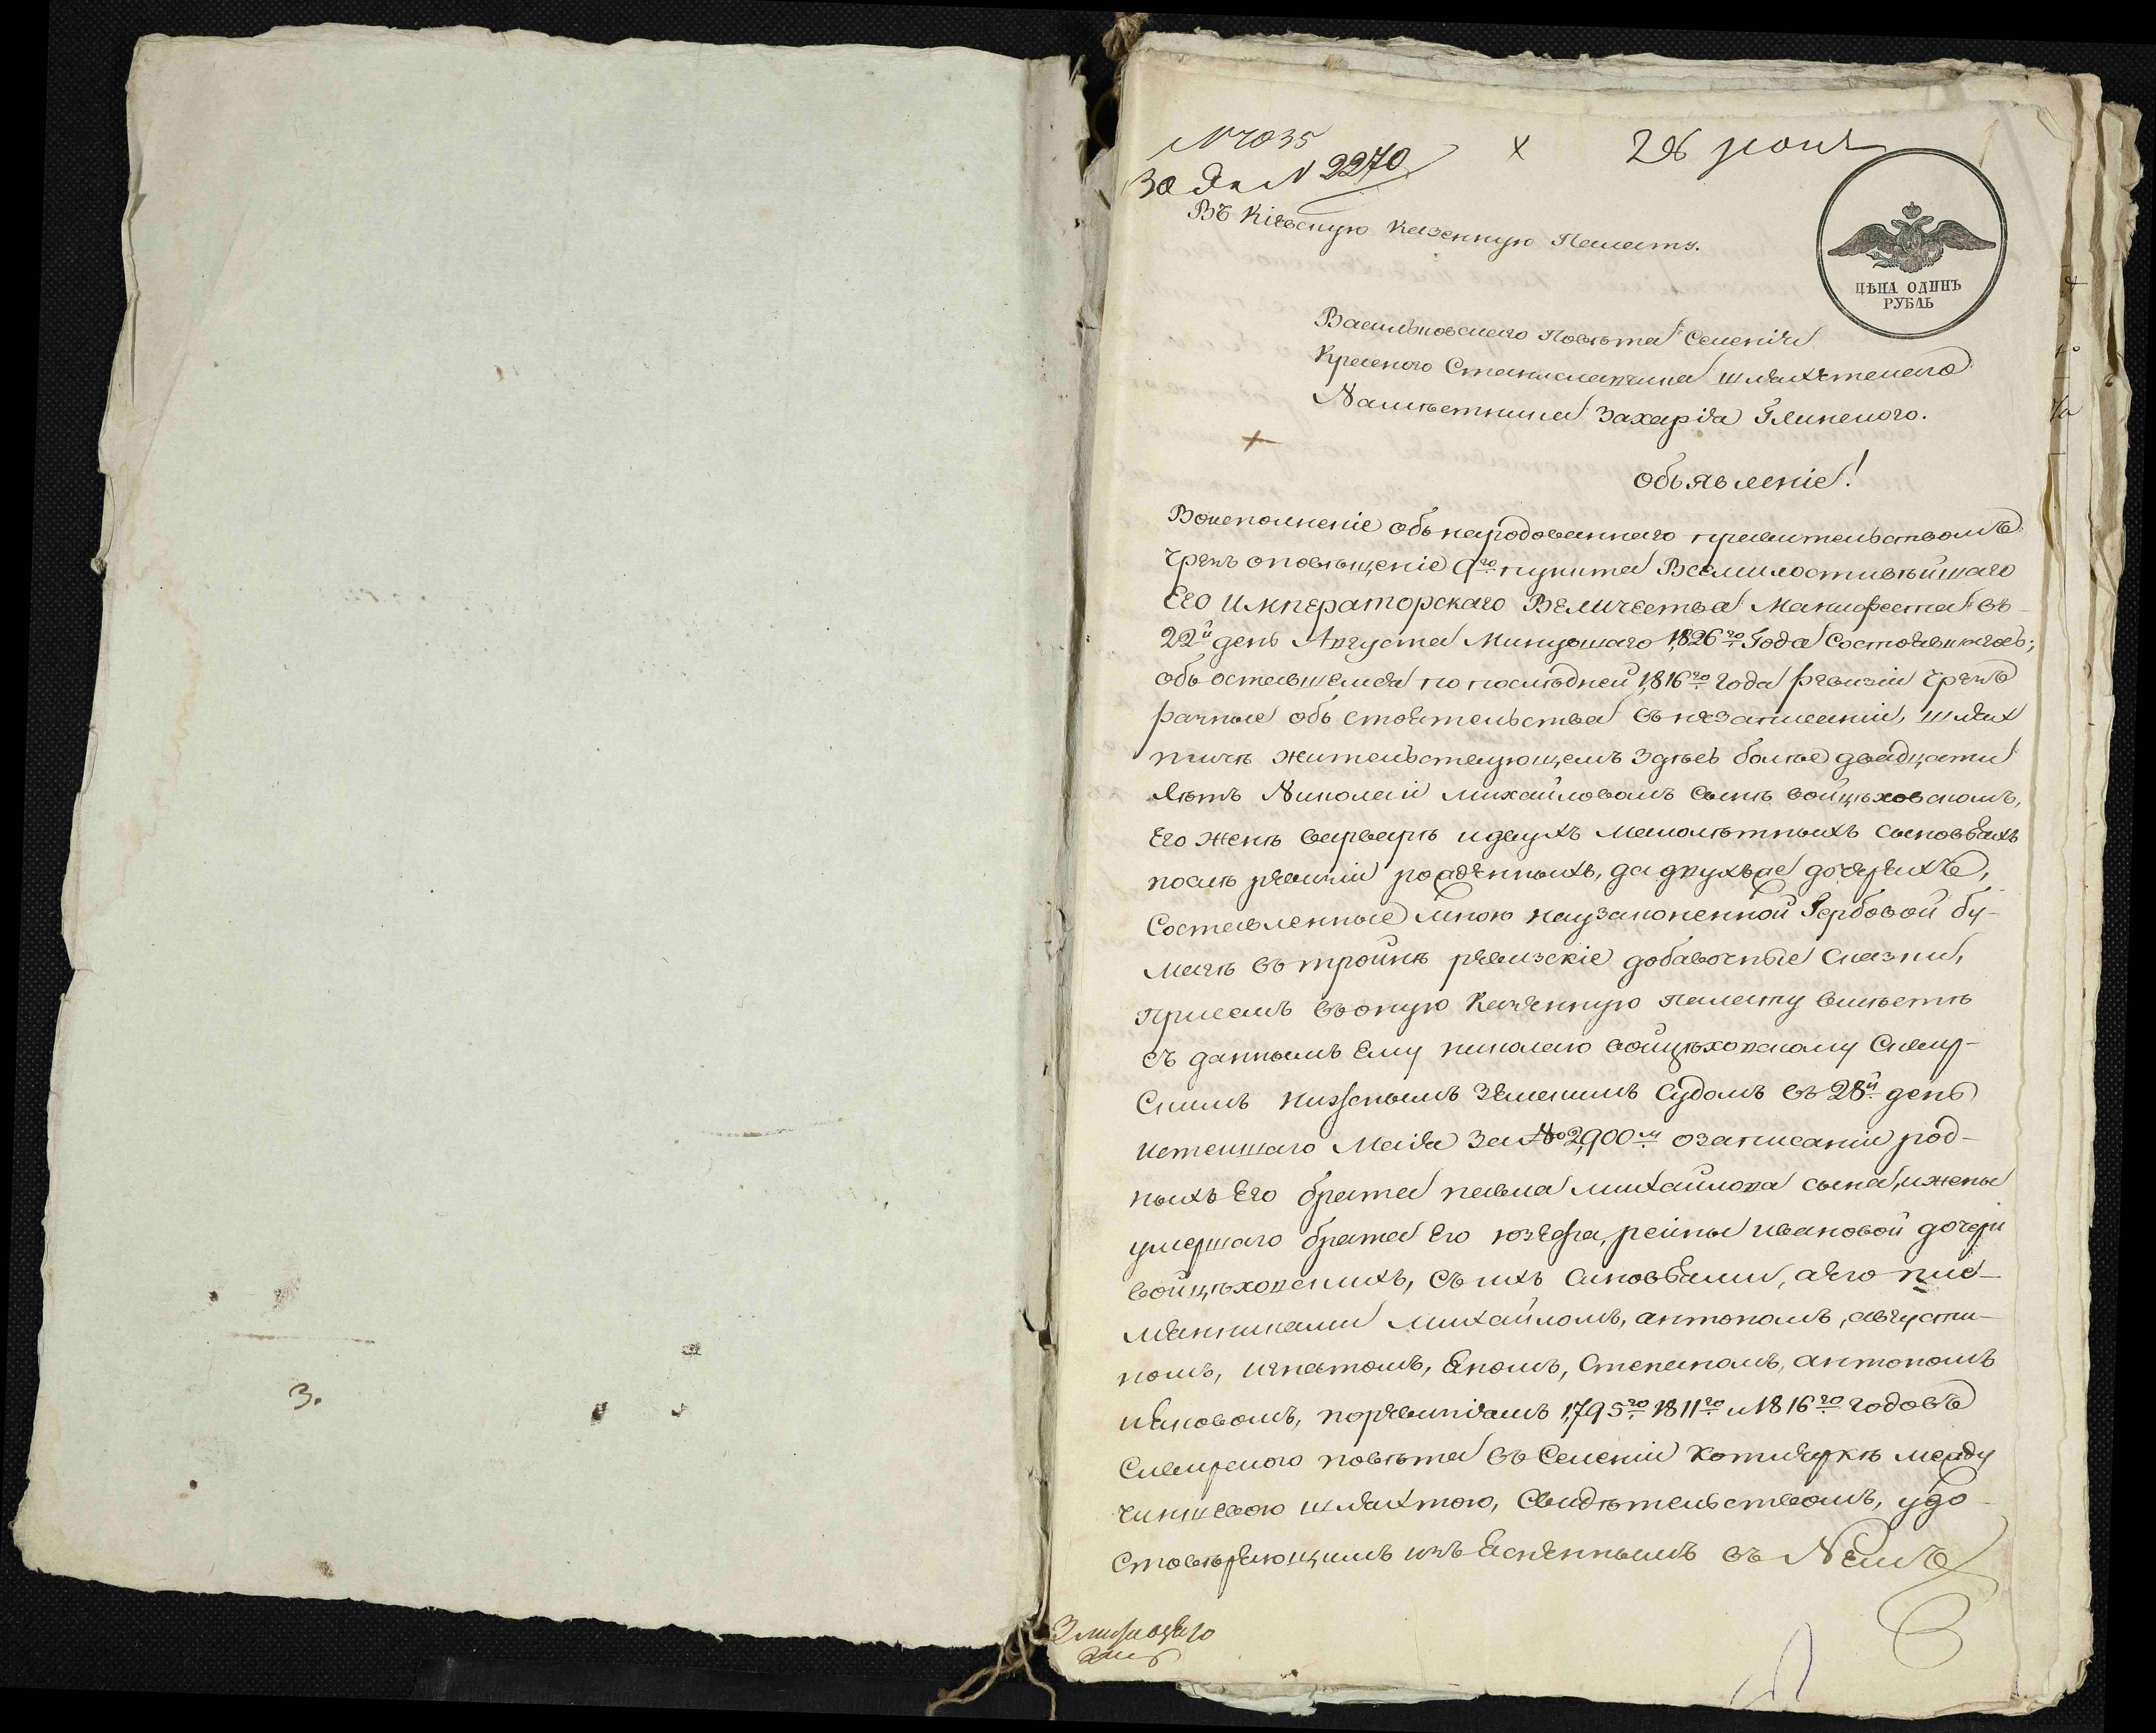 № 7035
№ 2270
26 июня
Въ Кіевскую Казенную Палату.
ЦѢНА ОДИНЪ
РУБЛЬ
Васильковскаго Повѣта Селенія
Красного Станиславчика шляхетского
Намѣстника Захарія Глинского.
объявленіе!
Воисполненіе обьнародованнаго правительствомъ
чрезъ оповѣщеніе 9го пункта Всемилостивѣйшаго
Его Императорскаго Величества Манифеста въ
22й день Августа Минувшаго 1826го Года Состоявшагось;
объ оставшемся по послѣдней 1816го года ревизіи чрезъ
разные обьстоятельства въ незаписаніи, шлях
тичѣ жительствующемъ здѣсь болѣе двадцати
лѣтъ Николаи михайловомъ сынѣ войцѣховскомъ,
Его женѣ варварѣ идвухъ малолѣтныхъ сыновьяхъ
послѣ ревизіи рожденныхъ, да двухъже дочеряхъ,
Составленные мною наузаконенной Гербовой бу-
магѣ въ тройнѣ ревизскіе добавочные сказки,
Присемъ въоную Казенную палату вмѣстѣ
съ даннымъ Ему николаю войцѣховскому Сквир-
скимъ нижнымъ Земскимъ Судомъ въ 28й день
истекшаго Маія за № 2,900м озаписаніи род-
ныхъ Его брата павла михайлова сына, ижены
умершаго брата Его юзефа, реины ивановой дочери
войцѣховскихъ, съ ихъ синовьями, аего пле-
мянниками михайломъ, антономъ, августи-
номъ, игнатомъ, Яномъ, Степаномъ, антономъ
иЯковомъ, поревизіямъ 1,795го 1811го и 1816го годовъ
Сквирского повѣта въ Селеніи Котлярки между
чиншевою шляхтою, Свидѣтельствомъ, удо-
стовѣряющимъ изъясненнымъ въ Немъ
3.